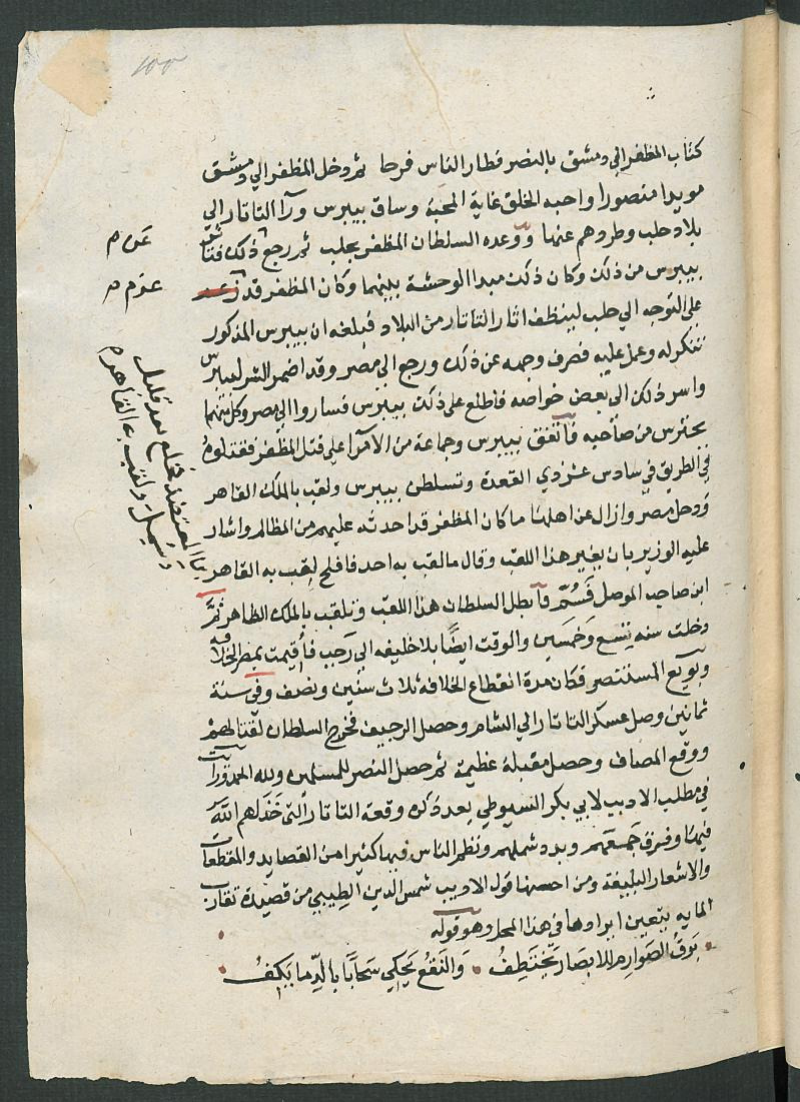 كتاب المظفر الي دمشق بالنصر فطار الناس فرحا ثم دخل المظفر الي دمشق
مويدا منصورا واحبه الخلق غاية المحبة وساق بيبرس ورآ التاتار الي
بلاد حلب وطردهم عنها ووعده السلطان المظفر بحلب ثم رجع عن ذلك فتاثر
بيبرس من ذلك وكان ذلك مبدا الوحشة بينهما وكان المظفر قد عزم
على التوجه الي حلب لينظف اثار التاتار من البلاد فبلغه ان بيبرس المذكور
تنكر له وعمل عليه فصرف وجهه عن ذلك ورجع الي مصر وقد اضمر الشر لبيبرس
واسر ذلك الى بعض خواصه فاطلع على ذلك بيبرس فساروا الي مصر وكل منهما
يحترس من صاحبه فآتفق بيبرس وجماعة من الامرآ على قتل المظفر فقتلوهُ
في الطريق في سادس عشر ذي القعدة وتسلطن بيبرس ولقب بالملك القاهر
ودخل مصر وازال عن اهلها ما كان المظفر قد احدثه عليهم من المظالم واشار
عليه الوزير بان يغير هذا اللقب وقال ما لقب به احد فافلح لقب به القاهر
ابن صاحب الموصل فَسُمّ فآبطل السلطان هذا اللقب وتلقب بالملك الظاهر ثمَّ
دخلت سنه تِسع وَخمسَين والوقت ايضًا بلا خليفه الي رَجب فأقيمت بمصر الخلافه
وبويع المستنصر فكان مدة انقطاع الخلافه ثلاث سنين ونصف وفي سنة
ثمانين وصل عسكر التاتار الي الشام وحصل الرجيف فخرج السلطان لقتالهم
ووقع المصاف وحصل مقبلة عظيمة ثم حصل النصر للمسلمين ولله الحمد ورآيت
في مطلب الاديب لابي بكر السيوطي بعد ذكره وقعة التاتار التي خَذلهم اللَّه
فيهَا وفرق جمعهم وبدد شملهم ونظم الناس فيها كثيرا من القصايد والمقطعات
والاشعار البليغة ومن احسنها قول الاديب شمس الدين الطيبي من قصيدة تقارب
المايه يتعين ايرادها في هذا المحل وهو قوله
بَرقُ الصَوارِم للابصَار يَختَطِفُ والنَقعُ يَحكي سَحَابًا بالدِّما يَكفُ
عزم
عزم
المعتضد فخلع بعد قليل
ولقب به القاهر
100